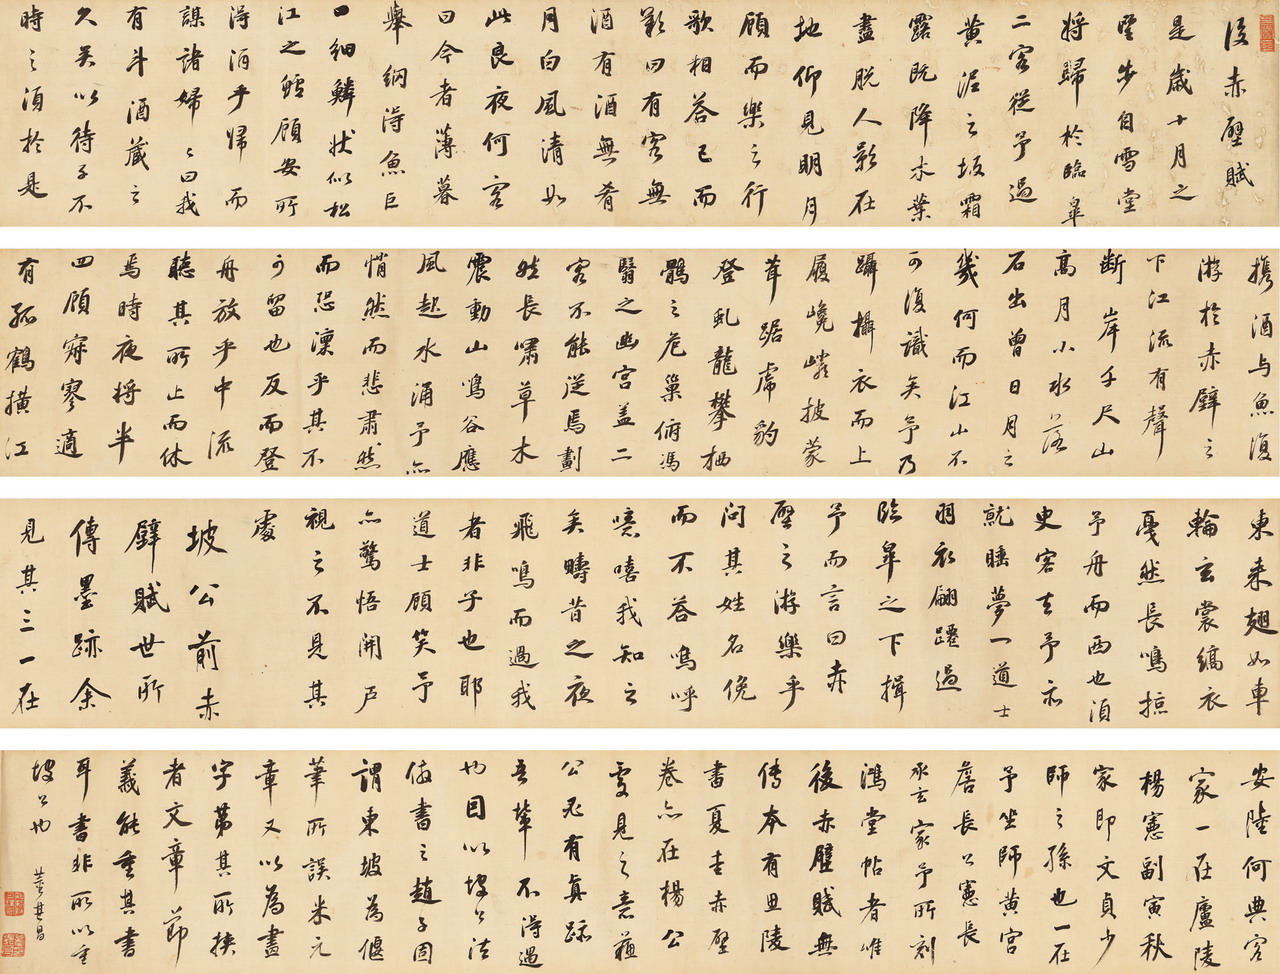 後赤壁賦
是歲十月之
望步自雪堂
將歸於臨皋
二客從予過
黃泥之坂霜
露既降木葉
盡脫人影在
地仰見明月
顧而樂之行
歌相答已而
歎曰有客無
酒有酒無肴
月白風清如
此良夜何客
曰今者薄暮
舉網得魚巨
口細鱗狀似松
江之鱸顧安所
得酒乎歸而
謀諸婦婦曰我
有斗酒藏之
久矣以待子不
時之須於是
攜酒与魚復
游於赤壁之
下江流有聲
斷岸千尺山
高月小水落
石出曾日月之
幾何而江山不
可復識矣予乃
躡攝衣而上
履巉巖披蒙
茸踞虎豹
登虬龍攀栖
鶻之危巢俯馮
翳之幽宮盖二
客不能從焉劃
然長嘯草木
震動山鳴谷應
風起水涌予亦
悄然而悲肅然
而恐凜乎其不
可留也反而登
舟放乎中流
聽其所止而休
焉時夜將半
四顧寂寥適
有孤鶴橫江
東來翅如車
輪玄裳縞衣
戛然長鳴掠
予舟而西也須
臾客去予亦
就睡夢一道士
羽衣翩躚過
臨皋之下揖
予而言曰赤
壁之游樂乎
問其姓名俛
而不答嗚呼
噫嘻我知之
矣疇昔之夜
飛鳴而過我
者非子也耶
道士顧笑予
亦驚悟開戶
視之不見其
處
坡公前赤
壁賦世所
傳墨跡余
見其三一在
安陸何典客
家一在廬陵
楊憲副寅秋
家即文貞少
師之孫也一在
予坐師黃宮
詹長公憲長
承玄家予所刻
鴻堂帖者惟
後赤壁賦無
傳本有陵
書夏圭赤壁
卷亦在楊公
見之意蘓
公有真跡
吾輩不得過
也因以坡公法
倣書之趙子固
謂東坡為偃
筆所誤米元
章又以為畫
字第其所挾
者文章節
義能重其書
耳書非所以重
坡公也 董其昌